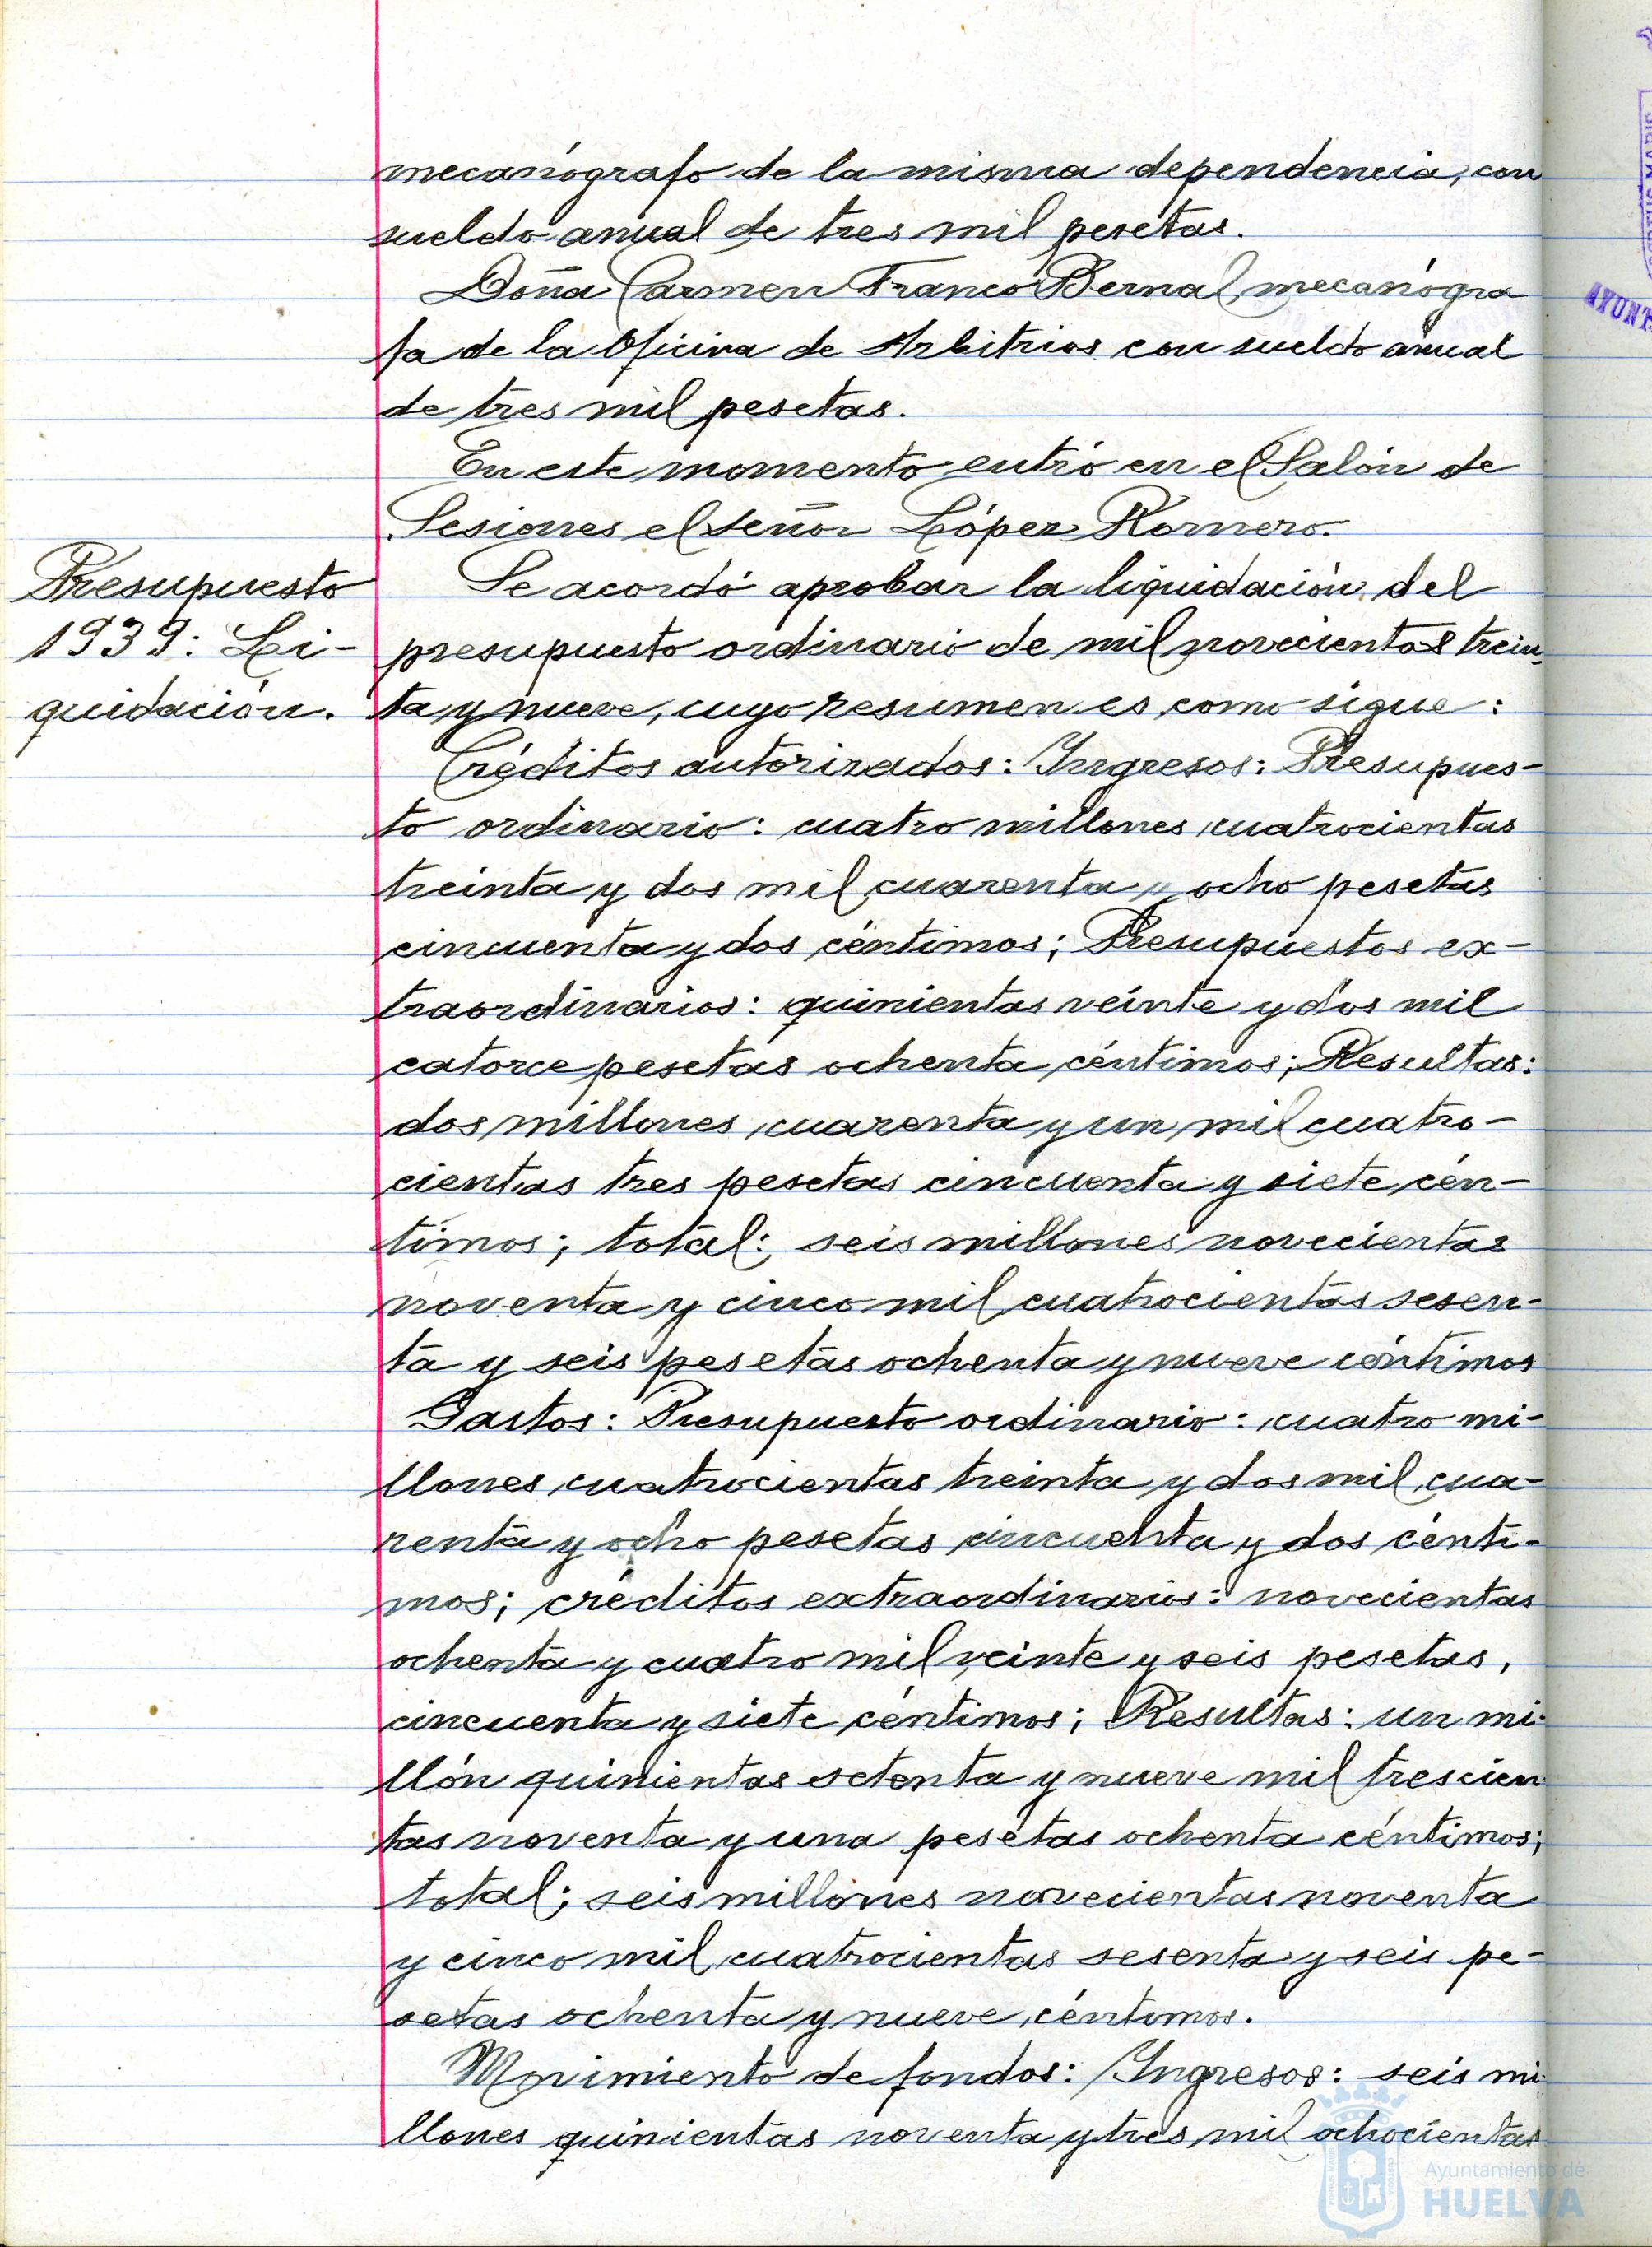 mecanógrafo de la misma dependencia, con
sueldo anual de tres mil pesetas.
Doña Carmen Franco Bernal mecanógra
fa de la Oficina de Arbitrios con sueldo anual
de tres mil pesetas.
En este momento entró en el Salón de
Sesiones el señor López Romero.
Presupuesto
1939: Li-
quidación.
Se acordó aprobar la liquidación del
presupuesto ordinario de mil novecientos trein
ta y nueve, cuyo resumen es como sigue:
Créditos autorizados: Ingresos: Presupues-
to ordinario: cuatro millones cuatrocientas
treinta y dos mil cuarenta y ocho pesetas
cincuenta y dos céntimos; Presupuestos ex-
traordinarios: quinientas veinte y dos mil
catorce pesetas ochenta céntimos; Resultas:
dos millones cuarenta y un mil cuatro-
cientas tres pesetas cincuenta y siete cén-
timos; total: seis millones novecientas
noventa y cinco mil cuatrocientas sesen-
ta y seis pesetas ochenta y nueve céntimos
Gastos: Presupuesto ordinario: cuatro mi-
llones cuatrocientas treinta y dos mil cua-
renta y ocho pesetas cincuenta y dos cénti-
mos; créditos extraordinarios: novecientas
ochenta y cuatro mil veinte y seis pesetas,
cincuenta y siete céntimos; Resultas: un mi-
llón quinientas setenta y nueve mil trescien
tas noventa y una pesetas ochenta céntimos;
total; seis millones novecientas noventa
y cinco mil cuatrocientas sesenta y seis pe-
setas ochenta y nueve céntimos.
Movimiento de fondos: Ingresos: seis mi
llones quinientas noventa y tres mil ochocientas
AYUNT
Ayuntamiento de
HUELVA